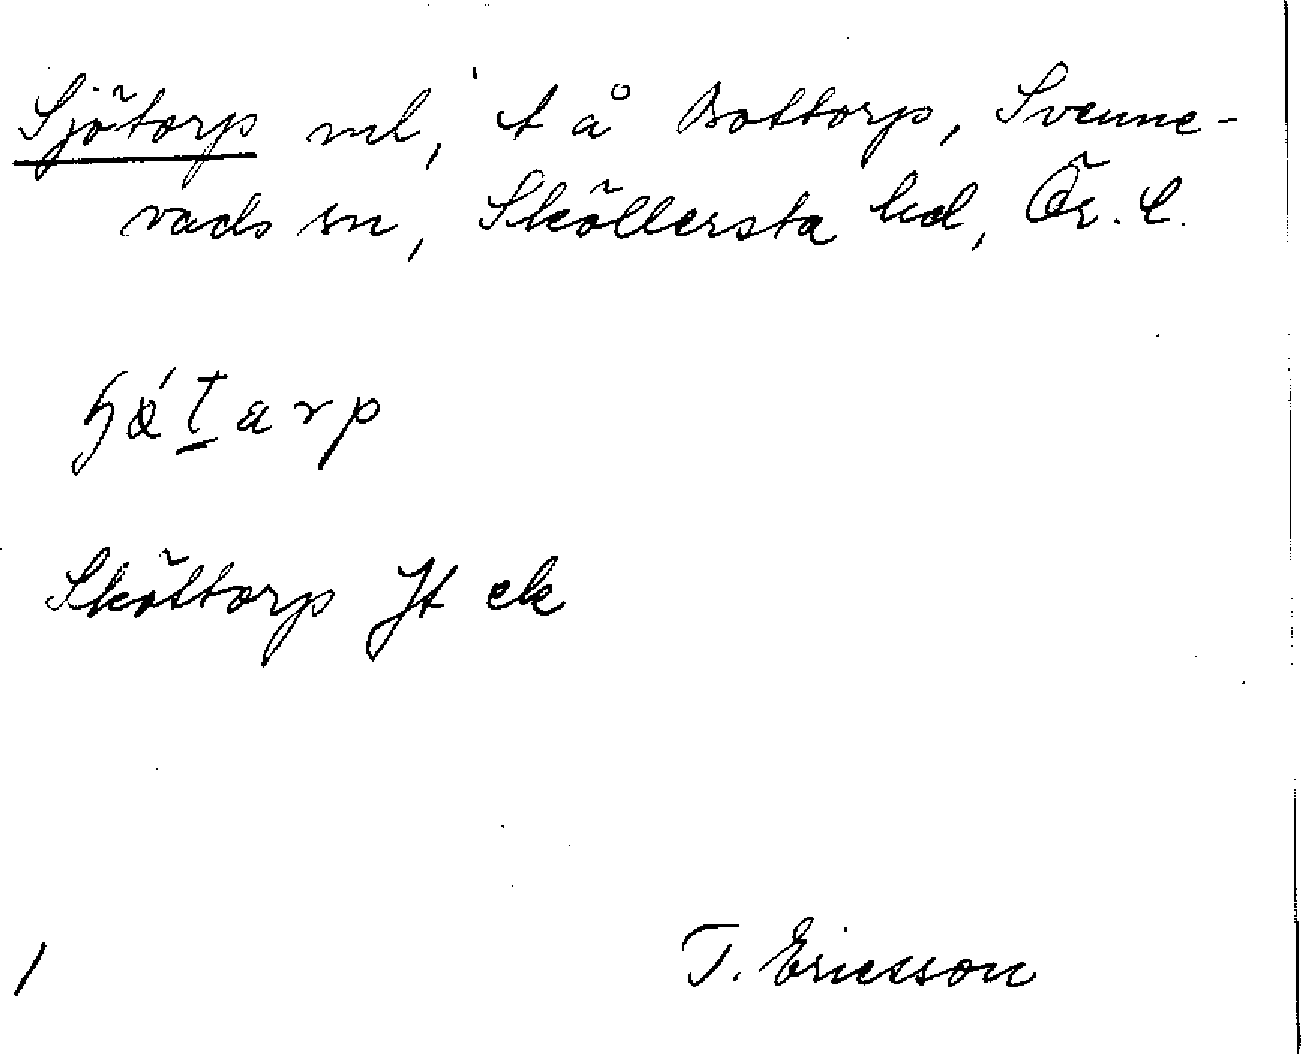 Sjötorp vnl, t å Bottorp, Svenne-
vads sn, Sköllersta hd, Ör. l.
ɧǿt̲arp
Sköttorp Jt ek
1
T. Ericsson